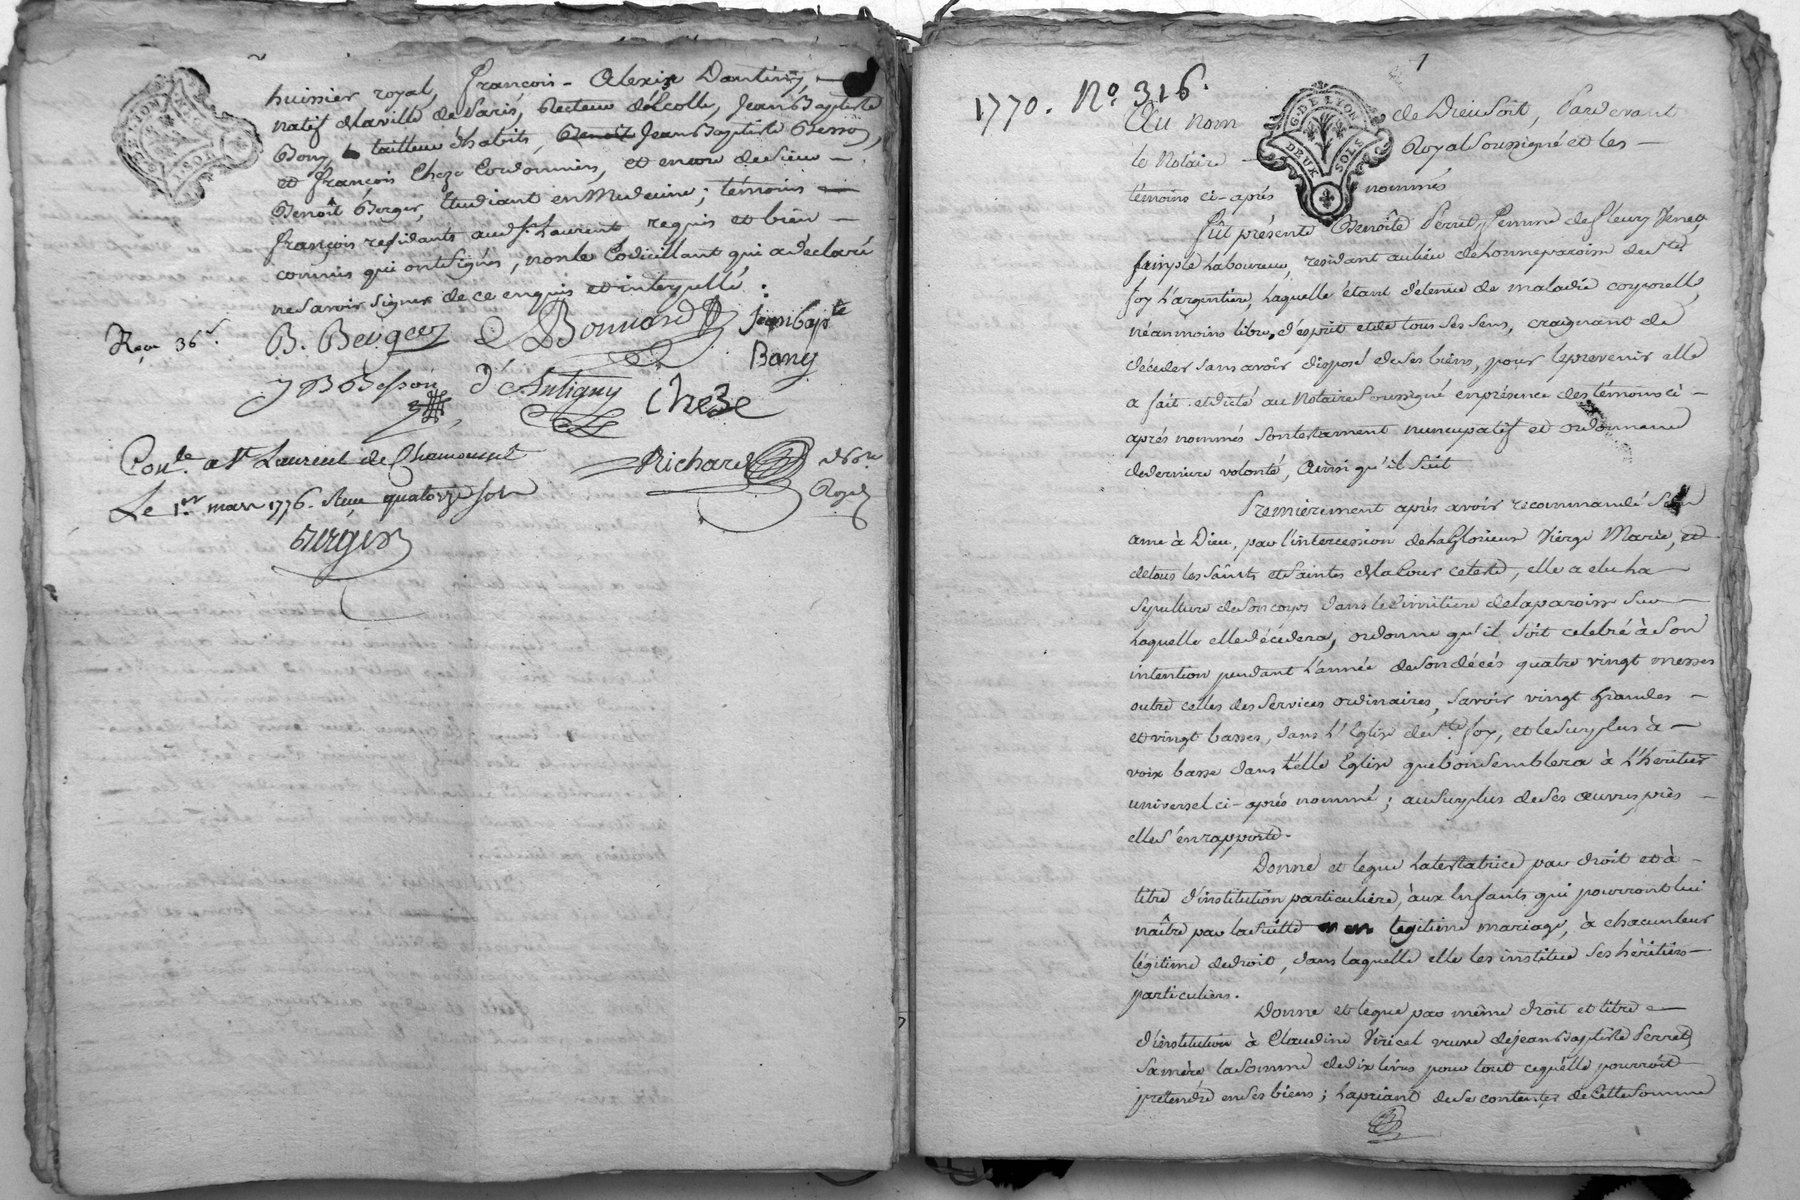 huissier royal, François-Alexis Dantigny,
natif de la ville de Paris, Recteur d'École, Jean Baptiste
Bony, tailleur d'habits, Benoit Jean Baptiste Besson,
et François Cheze Cordonnier, et encore de Sieur
Benoît Berger, Etudiant en Medecine; témoins
françois residants aud. St. Laurent requis et bien
connus qui ont signés, non le Codicillant qui a déclaré
ne savoir signer de ce enquis et interpellé.
Reçu 36 s
B. Berger Bonnard Jean bap.te
Bony
J B Besson D'Antigny Cheze
Con.lé a St. Laurent de Chamousset
Richard No.re
Royal
Le 1.er mars 1776. Reçu quatorze sols
Berger
1
1770. N.o 316.
G. DE LYON
DEUX SOLS
Au nom de Dieu soit, Pardevant
le Notaire Royal soussigné et les
témoins ci-après nommés
fût présente Benoîte Perret, femme de fleury Venet,
simple Laboureur, residant au lieu de paroisse de Ste.
foy L'argentière, Laquelle étant détenue de maladie corporelle,
néanmoins libre d'esprit et de tous ses sens, craignant de
décéder sans avoir disposé de ses biens, pour le prevenir elle
a fait et dicté au Notaire soussigné en présence des témoins ci-
après nommés son testament nuncupatif et ordonnance
de derniere volonté, Ainsi qu'il suit
Premierement après avoir recommandé son
ame à Dieu, par l'intercession de la Glorieuse Vierge Marie, et
de tous les Saints et Saintes de la Cour celeste, elle a elu sa
sepulture de son corps dans le cimitiere de la paroisse sur
Laquelle elle décédera, ordonne qu'il soit celebré à son
intention pendant L'année de son décés quatre vingt messes
outre celles des services ordinaires, savoir vingt Grandes
et vingt basses, dans L'Eglise de Ste. foy, et le surplus à
voix basse dans telle Eglise que bon semblera à L'héritier
universel ci-après nommé; au surplus de ses œuvres pies
elle s'en rapporte.
Donne et legue La testatrice par droit et à
titre d'institution particulière, aux Enfants qui pourront lui
naître par la suitte en legitime mariage, à chacun leur
légitime de droit, dans laquelle elle les institue ses héritiers
particuliers.
Donne et legue par même droit et titre
d'institution à Claudine Viricel veuve de jean Baptiste Perret,
sa mère la somme de dix livres pour tout ce qu'elle pourroit
prétendre en ses biens; La priant de se contenter de cette somme